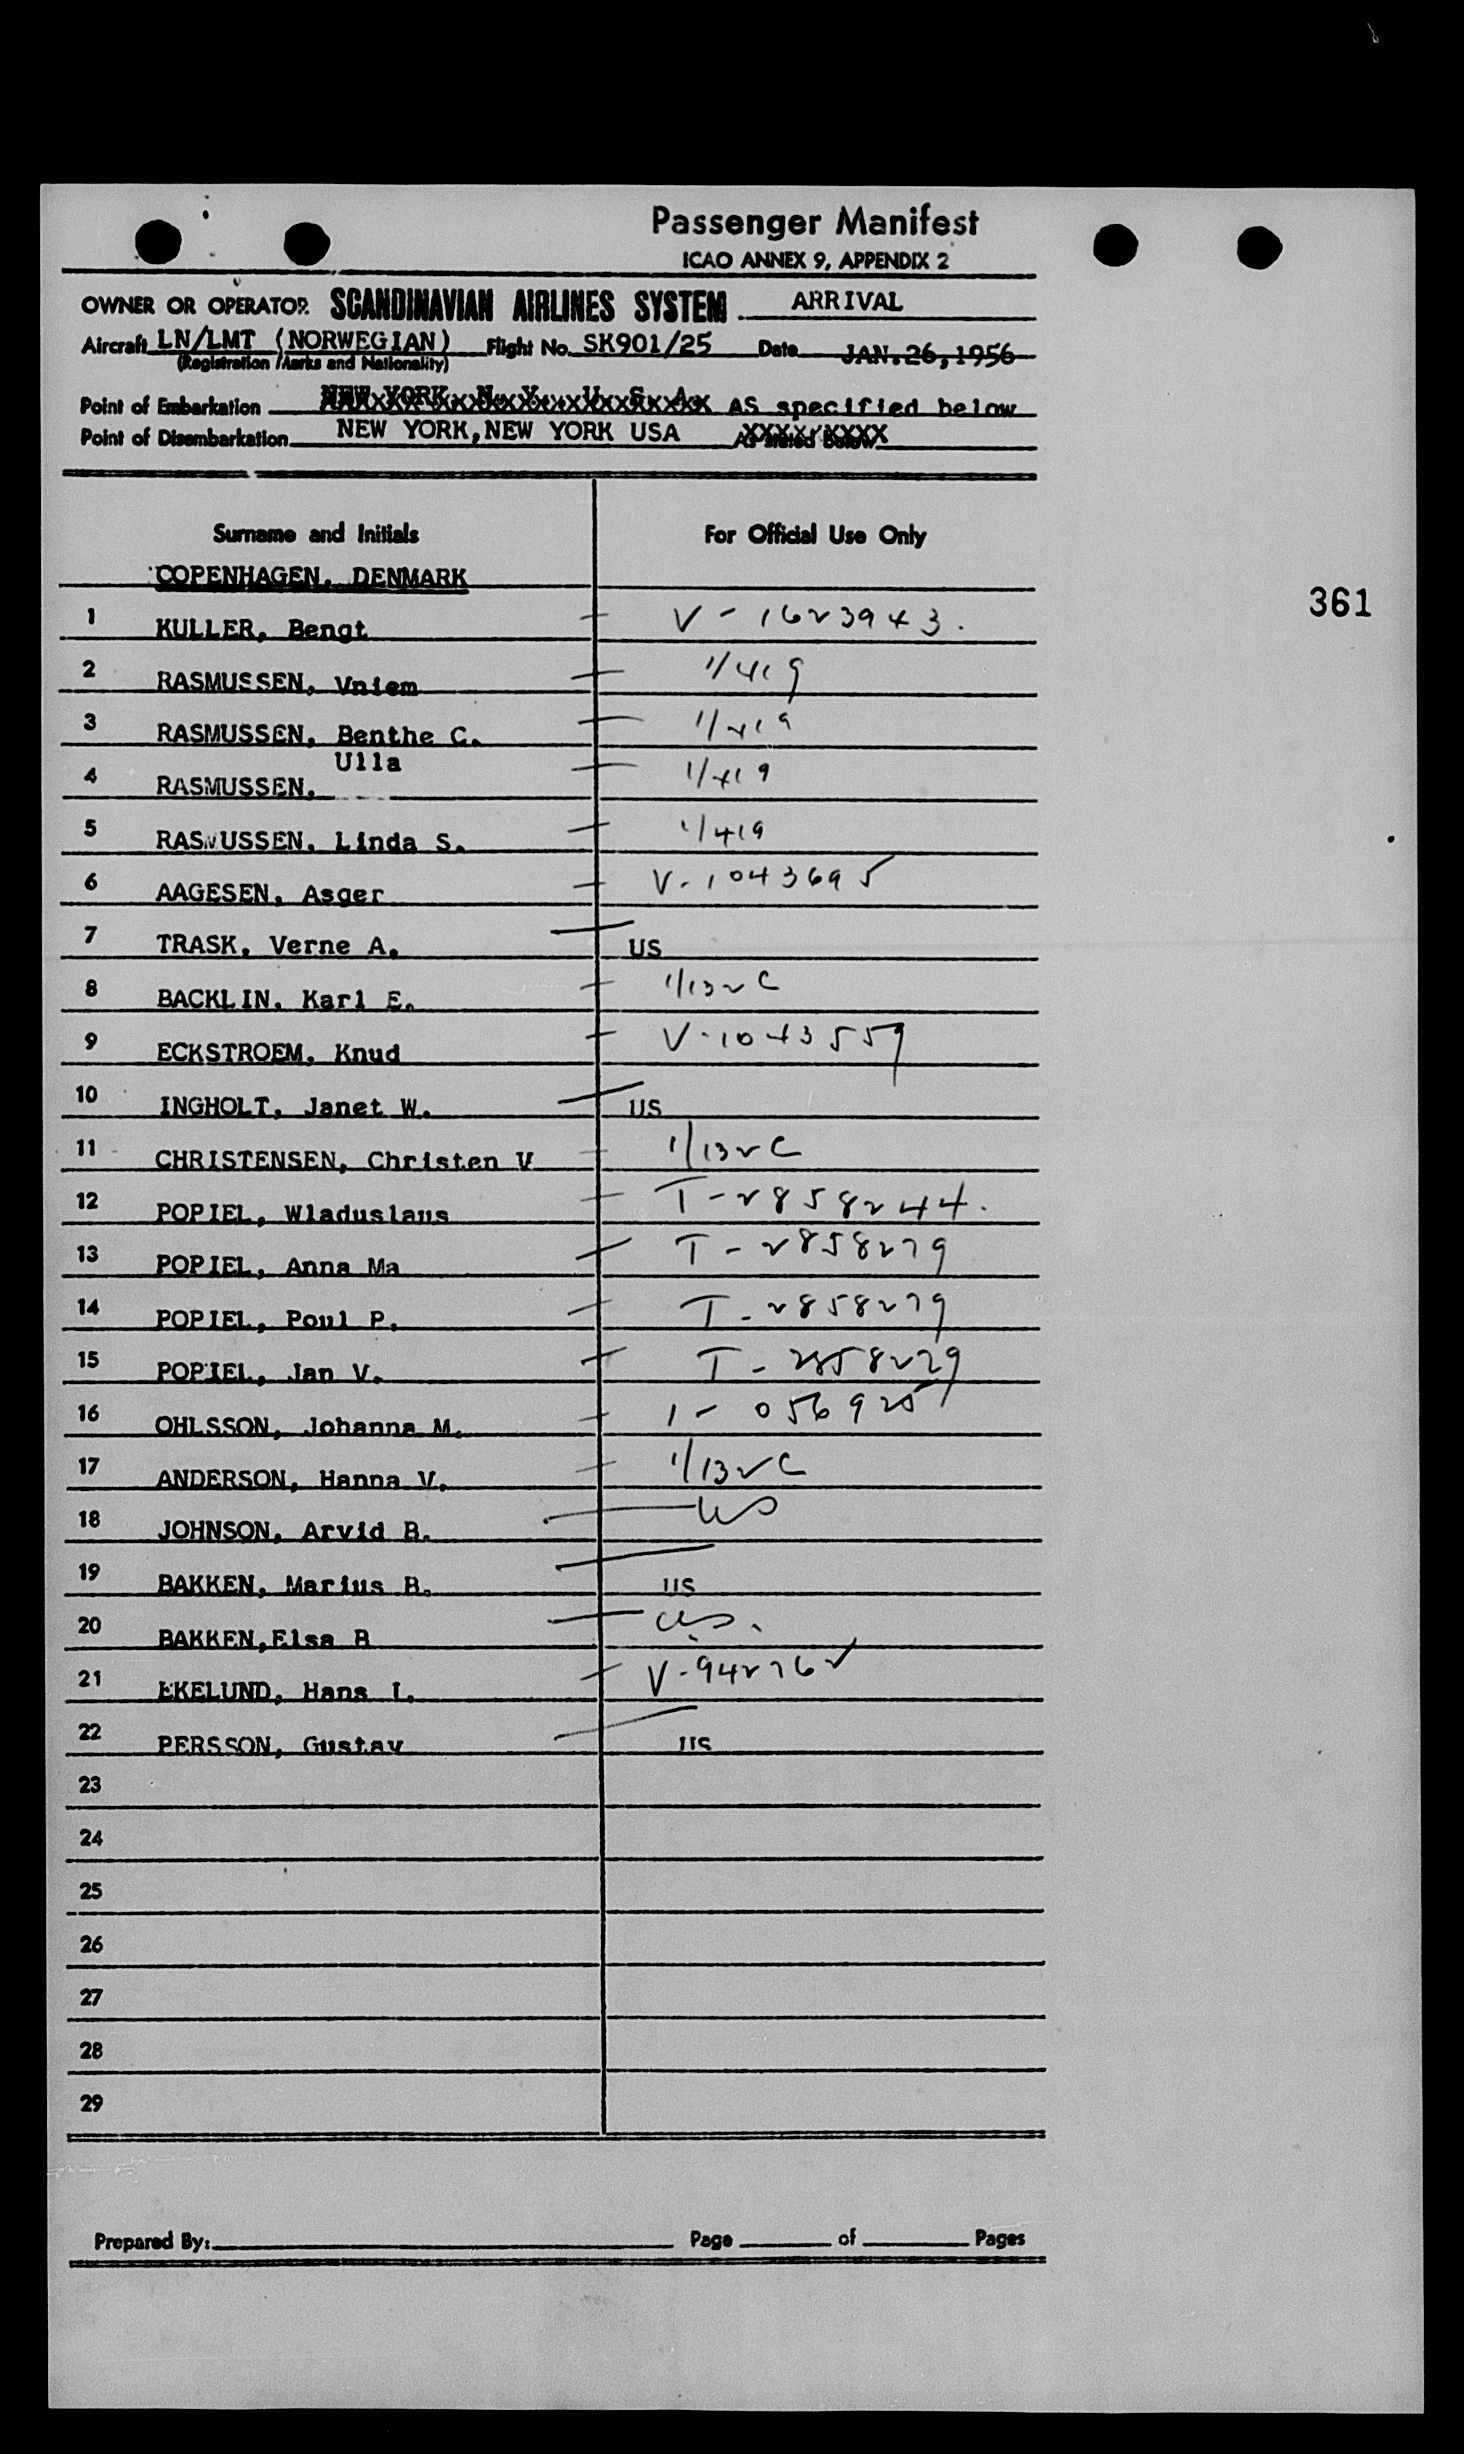 Passenger Manifest
ICAO ANNEX 9, APPENDIX 2
OWNER OR OPERATOR SCANDINAVIAN AIRLINES SYSTEM ARRIVAL
Aircraft LN/LMT (NORWEGIAN) Flight No. SK901/25 Date JAN.26,1956
(Registration Marks and Nationality)
Point of Embarkation NEW YORK, N. Y., U. S. A. AS specified below
Point of Disembarkation NEW YORK,NEW YORK USA As stated Below
Surname and Initials For Official Use Only
COPENHAGEN, DENMARK
361
1 KULLER, Bengt V-1623943.
2 RASMUSSEN, Vniem 1/419
3 RASMUSSEN, Benthe C. 1/419
Ulla
4 RASMUSSEN, 1/419
5 RASMUSSEN, Linda S. 1/419
6 AAGESEN, Asger V-1043695
7 TRASK, Verne A. US
8 BACKLIN, Karl E. 1/132C
9 ECKSTROEM, Knud V-1043559
10 INGHOLT, Janet W. US
11 CHRISTENSEN, Christen V 1/132C
12 POPIEL, Wladuslaus T-2858244.
13 POPIEL, Anna Ma T-2858279
14 POPIEL, Poul P. T-2858279
15 POPIEL, Jan V. T-2858279
16 OHLSSON, Johanna M. 1-056925
17 ANDERSON, Hanna V. 1/132C
18 JOHNSON, Arvid B. US
19 BAKKEN, Marius B. US
20 BAKKEN,Elsa B US.
21 EKELUND, Hans I. V-942762
22 PERSSON, Gustav US
23
24
25
26
27
28
29
Prepared By: Page of Pages